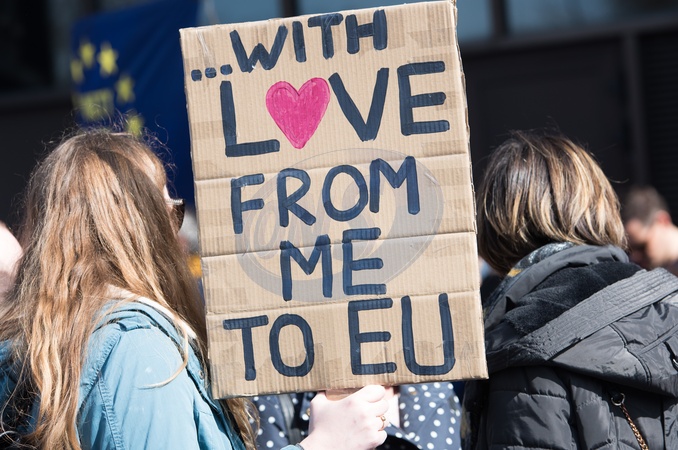 ...WITH
L♥VE
FROM
ME
TO EU